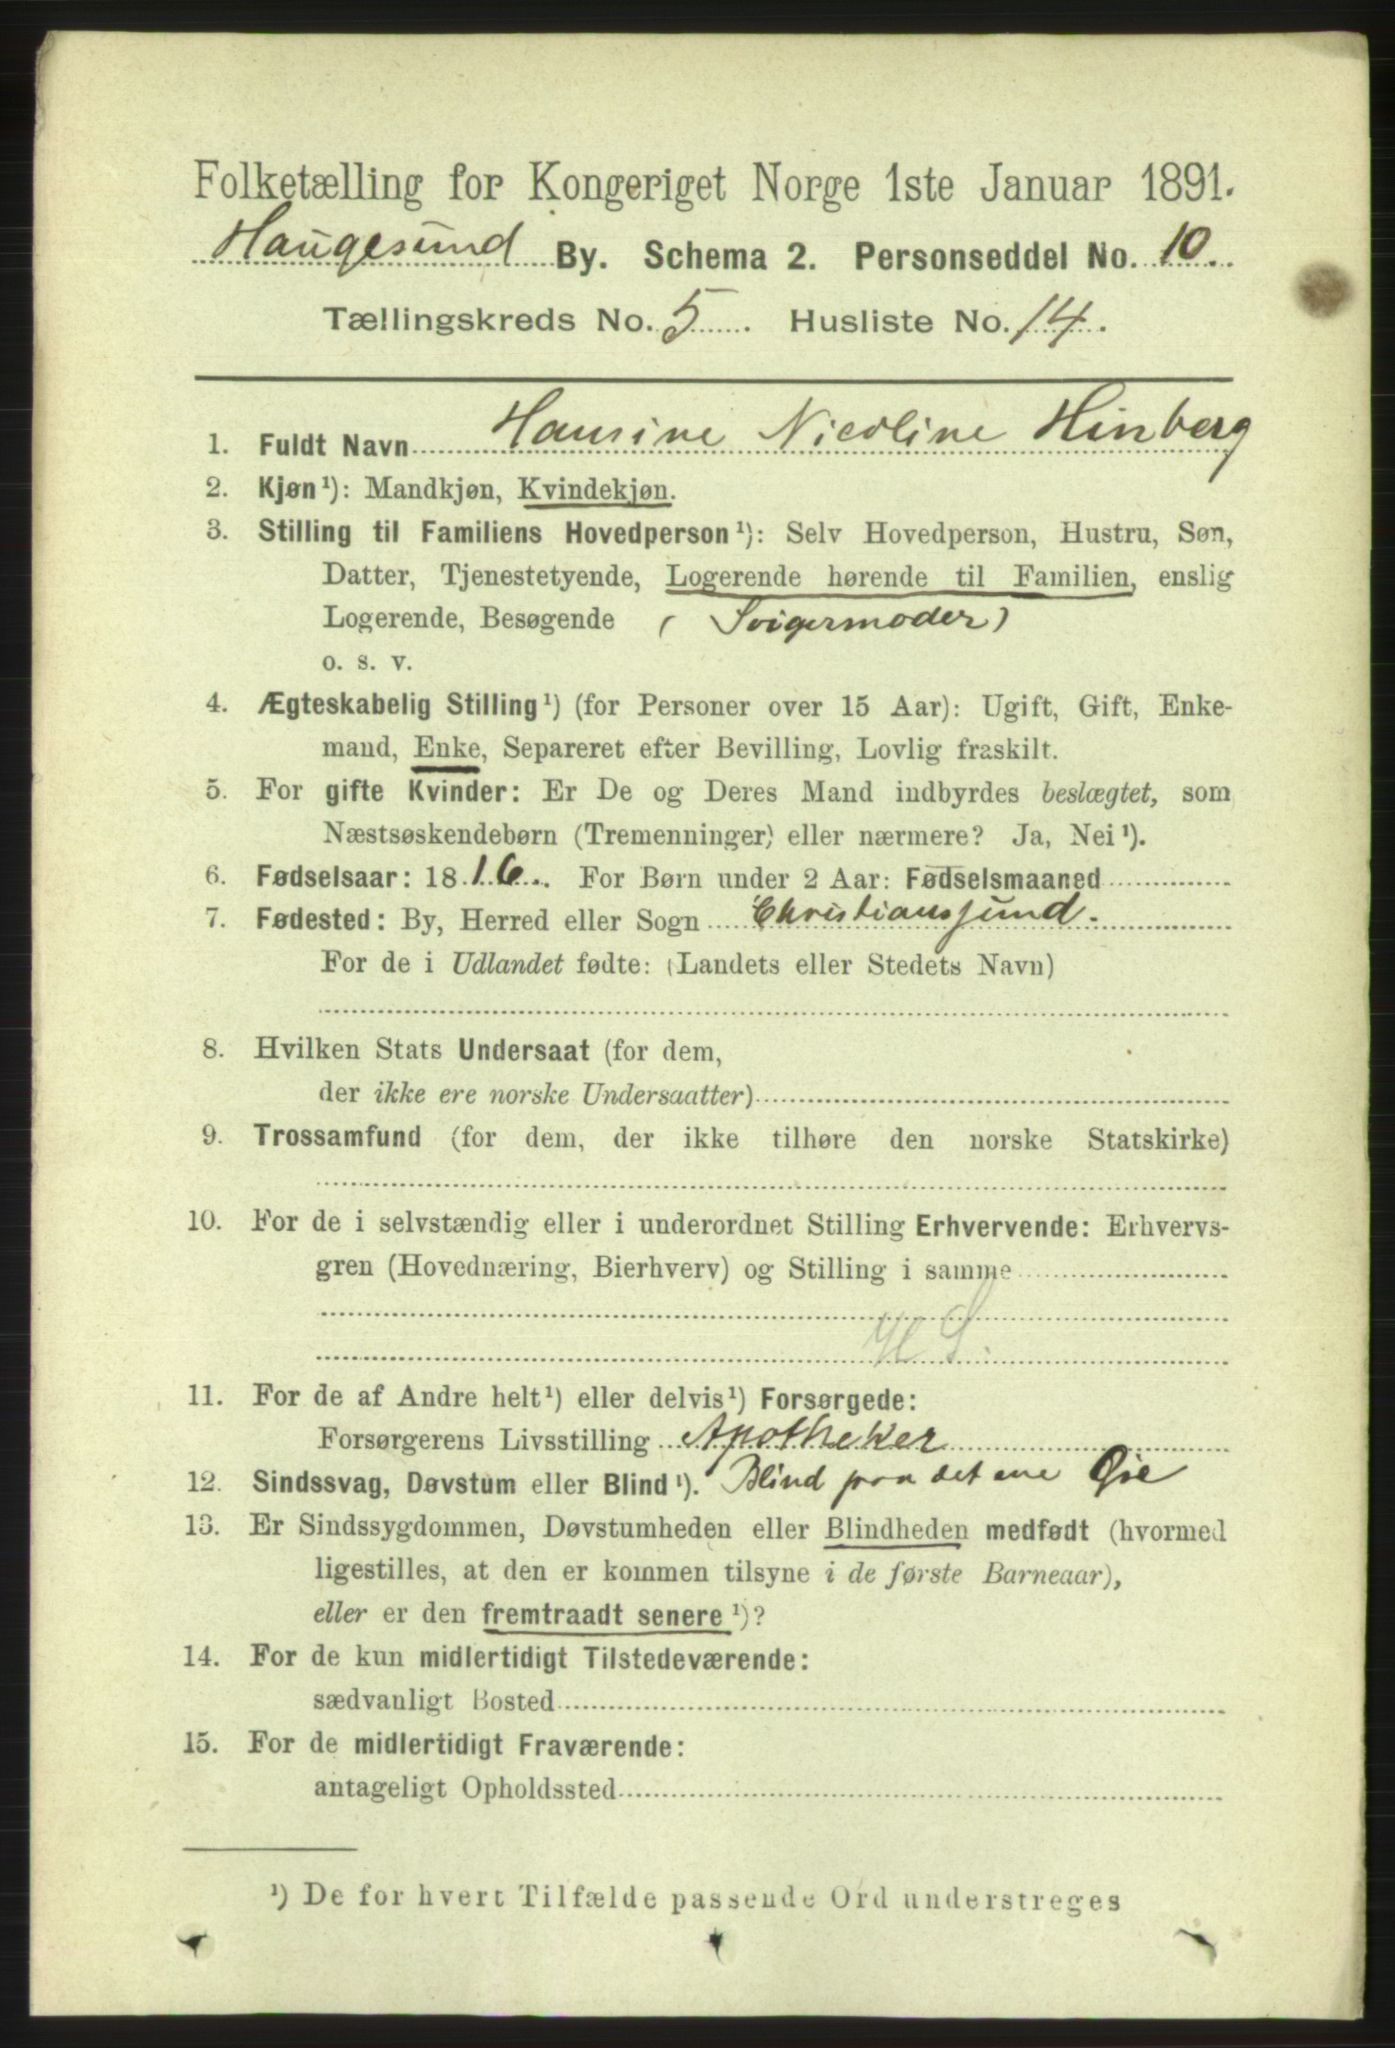 Folketælling for Kongeriget Norge 1ste Januar 1891.
Haugesund By. Schema 2. Personseddel No. 10.
Tællingskreds No. 5. Husliste No. 14.
1. Fuldt Navn Hansine Nicoline Hinberg
2. Kjøn¹): Mandkjøn, Kvindekjøn.
3. Stilling til Familiens Hovedperson¹): Selv Hovedperson, Hustru, Søn,
Datter, Tjenestetyende, Logerende hørende til Familien, enslig
Logerende, Besøgende (Svigermoder)
o. s. v.
4. Ægteskabelig Stilling¹) (for Personer over 15 Aar): Ugift, Gift, Enke-
mand, Enke, Separeret efter Bevilling, Lovlig fraskilt.
5. For gifte Kvinder: Er De og Deres Mand indbyrdes beslægtet, som
Næstsøskendebørn (Tremenninger) eller nærmere? Ja, Nei¹).
6. Fødselsaar: 1816. For Børn under 2 Aar: Fødselsmaaned
7. Fødested: By, Herred eller Sogn Christianssund.
For de i Udlandet fødte: (Landets eller Stedets Navn)
8. Hvilken Stats Undersaat (for dem,
der ikke ere norske Undersaatter)
9. Trossamfund (for dem, der ikke tilhøre den norske Statskirke)
10. For de i selvstændig eller i underordnet Stilling Erhvervende: Erhvervs-
gren (Hovednæring, Bierhverv) og Stilling i samme
11. For de af Andre helt¹) eller delvis¹) Forsørgede:
Forsørgerens Livsstilling Apotheker
12. Sindssvag, Døvstum eller Blind¹). Blind paa det ene Øie
13. Er Sindssygdommen, Døvstumheden eller Blindheden medfødt (hvormed
ligestilles, at den er kommen tilsyne i de første Barneaar),
eller er den fremtraadt senere¹)?
14. For de kun midlertidigt Tilstedeværende:
sædvanligt Bosted
15. For de midlertidigt Fraværende:
antageligt Opholdssted
¹) De for hvert Tilfælde passende Ord understreges